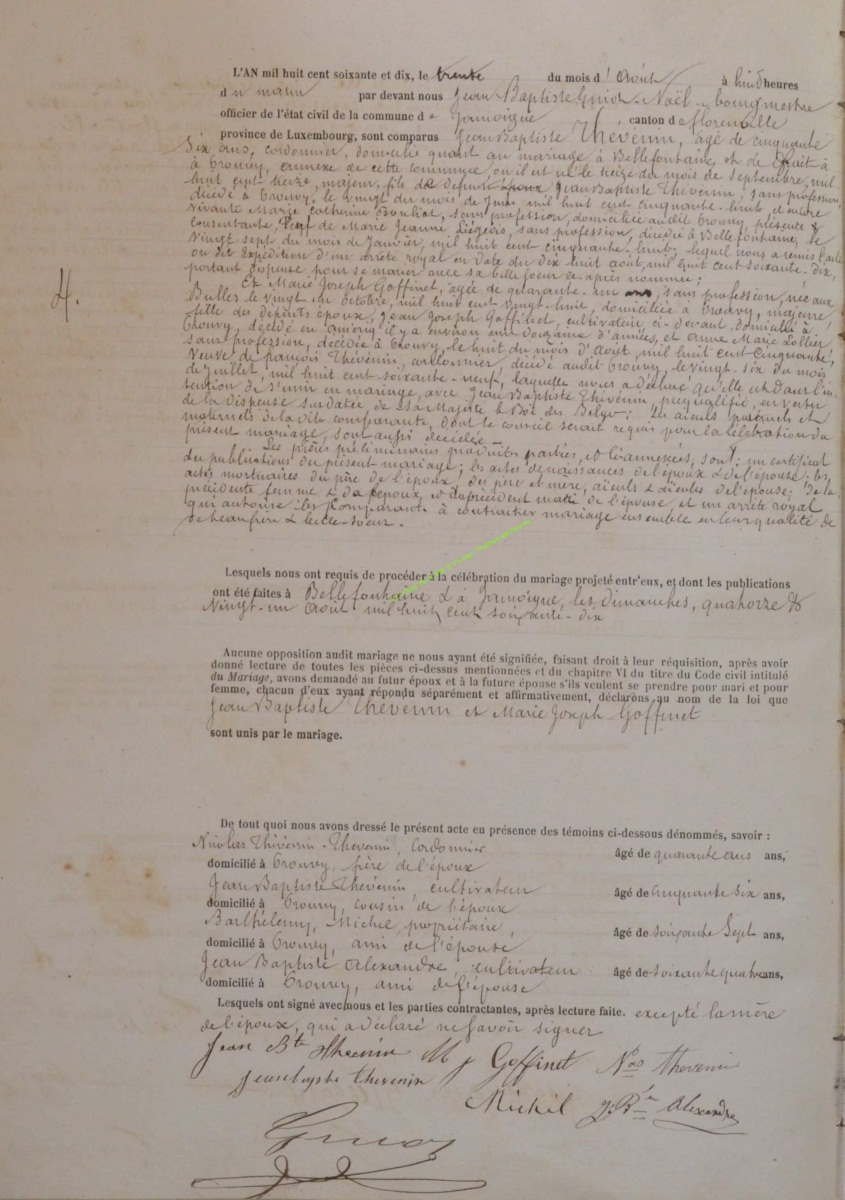 L'AN mil huit cent soixante et dix, le trente du mois d'Août à huit heures
du matin par devant nous Jean Baptiste Guiot-Noël, bourgmestre
officier de l'état civil de la commune de Jamoigne canton de florenville
province de Luxembourg, sont comparus Jean Baptiste Thevenin, âgé de cinquante
six ans, cordonnier, domicilié quant au mariage à Bellefontaine, et de fait à
à Prouvy, annexe de cette commune, où il est né le treize du mois de septembre, mil
huit cent treize, majeur, fils de défunt Jean Baptiste Thevenin, sans profession,
décédé à Prouvy, le vingt du mois de Juin mil huit cent cinquante-huit, et encore
vivante Marie Catherine sans profession, domiciliée audit Prouvy, présente &
consentante, veuf de Marie Jeanne Liégeois, sans profession, décédée à Bellefontaine, le
vingt sept du mois de Janvier, mil huit cent cinquante-huit, lequel nous a remis
ou dit Expédition d'un arrêté royal en date du dix huit août, mil huit cent soixante-dix,
portant dispense pour se marier avec sa belle soeur ci-après nommée;
4. Et Marie Joseph Goffinet, agée de quarante-un ans, sans profession, née aux
Bulles le vingt un octobre, mil huit cent vingt-huit, domiciliée à Prouvy, majeure,
fille des défunts époux, Jean Joseph Goffinet, cultivateur, ci-devant domicilié à
Prouvy, décédé en il y a environ une douzaine d'années, et Anne Marie Lollier
sans profession, décédée à Prouvy, le huit du mois d'Août, mil huit cent cinquante,
Veuve de françois Thevenin, cordonnier, décédé audit Prouvy, le vingt-six du mois
de Juillet, mil huit cent soixante-neuf, laquelle nous a déclaré qu'elle est dans l'in-
tention de s'unir en mariage, avec Jean Baptiste Thevenin, précqualifié, en vertu
de la dispense susdatée, de sa Majesté le Roi des Belges; Les aïeuls paternels et
maternels de la dite comparante, dont le conseil serait requis pour la célébration du
présent mariage, sont aussi décédés.
Les pièces préliminaires produites parties, et ci annexées, sont: un certificat
du publications du présent mariage; les actes de naissances de l'époux & de l'épouse; les
actes mortuaires du père de l'époux, des père et mère, aïeuls & aïeules de l'épouse; de la
précédente femme de l'époux, et du précédent mari de l'épouse, et un arrêté royal
qui autorise les Comparants à contracter mariage ensemble en leur qualité de
de beau frère & belle-soeur.
Lesquels nous ont requis de procéder à la célébration du mariage projeté entr'eux, et dont les publications
ont été faites à Bellefontaine & à Jamoigne, les dimanches, quatorze &
Vingt-un Août mil huit cent soixante-dix
Aucune opposition audit mariage ne nous ayant été signifiée, faisant droit à leur réquisition, après avoir
donné lecture de toutes les pièces ci-dessus mentionnées et du chapitre VI du titre du Code civil intitulé
du Mariage, avons demandé au futur époux et à la future épouse s'ils veulent se prendre pour mari et pour
femme, chacun d'eux ayant répondu séparément et affirmativement, déclarons au nom de la loi que
Jean Baptiste Thevenin et Marie Joseph Goffinet
sont unis par le mariage.
De tout quoi nous avons dressé le présent acte en présence des témoins ci-dessous dénommés, savoir :
Nicolas Thévenin-Thevenin, Cordonnier âgé de quarante ans ans,
domicilié à Prouvy, frère de l'époux
Jean Baptiste Thevenin, cultivateur âgé de Cinquante six ans,
domicilié à Prouvy, cousin de l'époux
Barthélemy, Michel, propriétaire, âgé de soixante Sept ans,
domicilié à Prouvy, ami de l'épouse
Jean Baptiste Alexandre, cultivateur âgé de soixante quatre ans,
domicilié à Prouvy, ami de l'épouse
Lesquels ont signé avec nous et les parties contractantes, après lecture faite. excepté la mère
de l'époux, qui a déclaré ne savoir signer
Jean Bte Thevenin M J Goffinet Nas Thevenin
Jean baptiste thevenin
Michel J. Bte Alexandre
Guiot